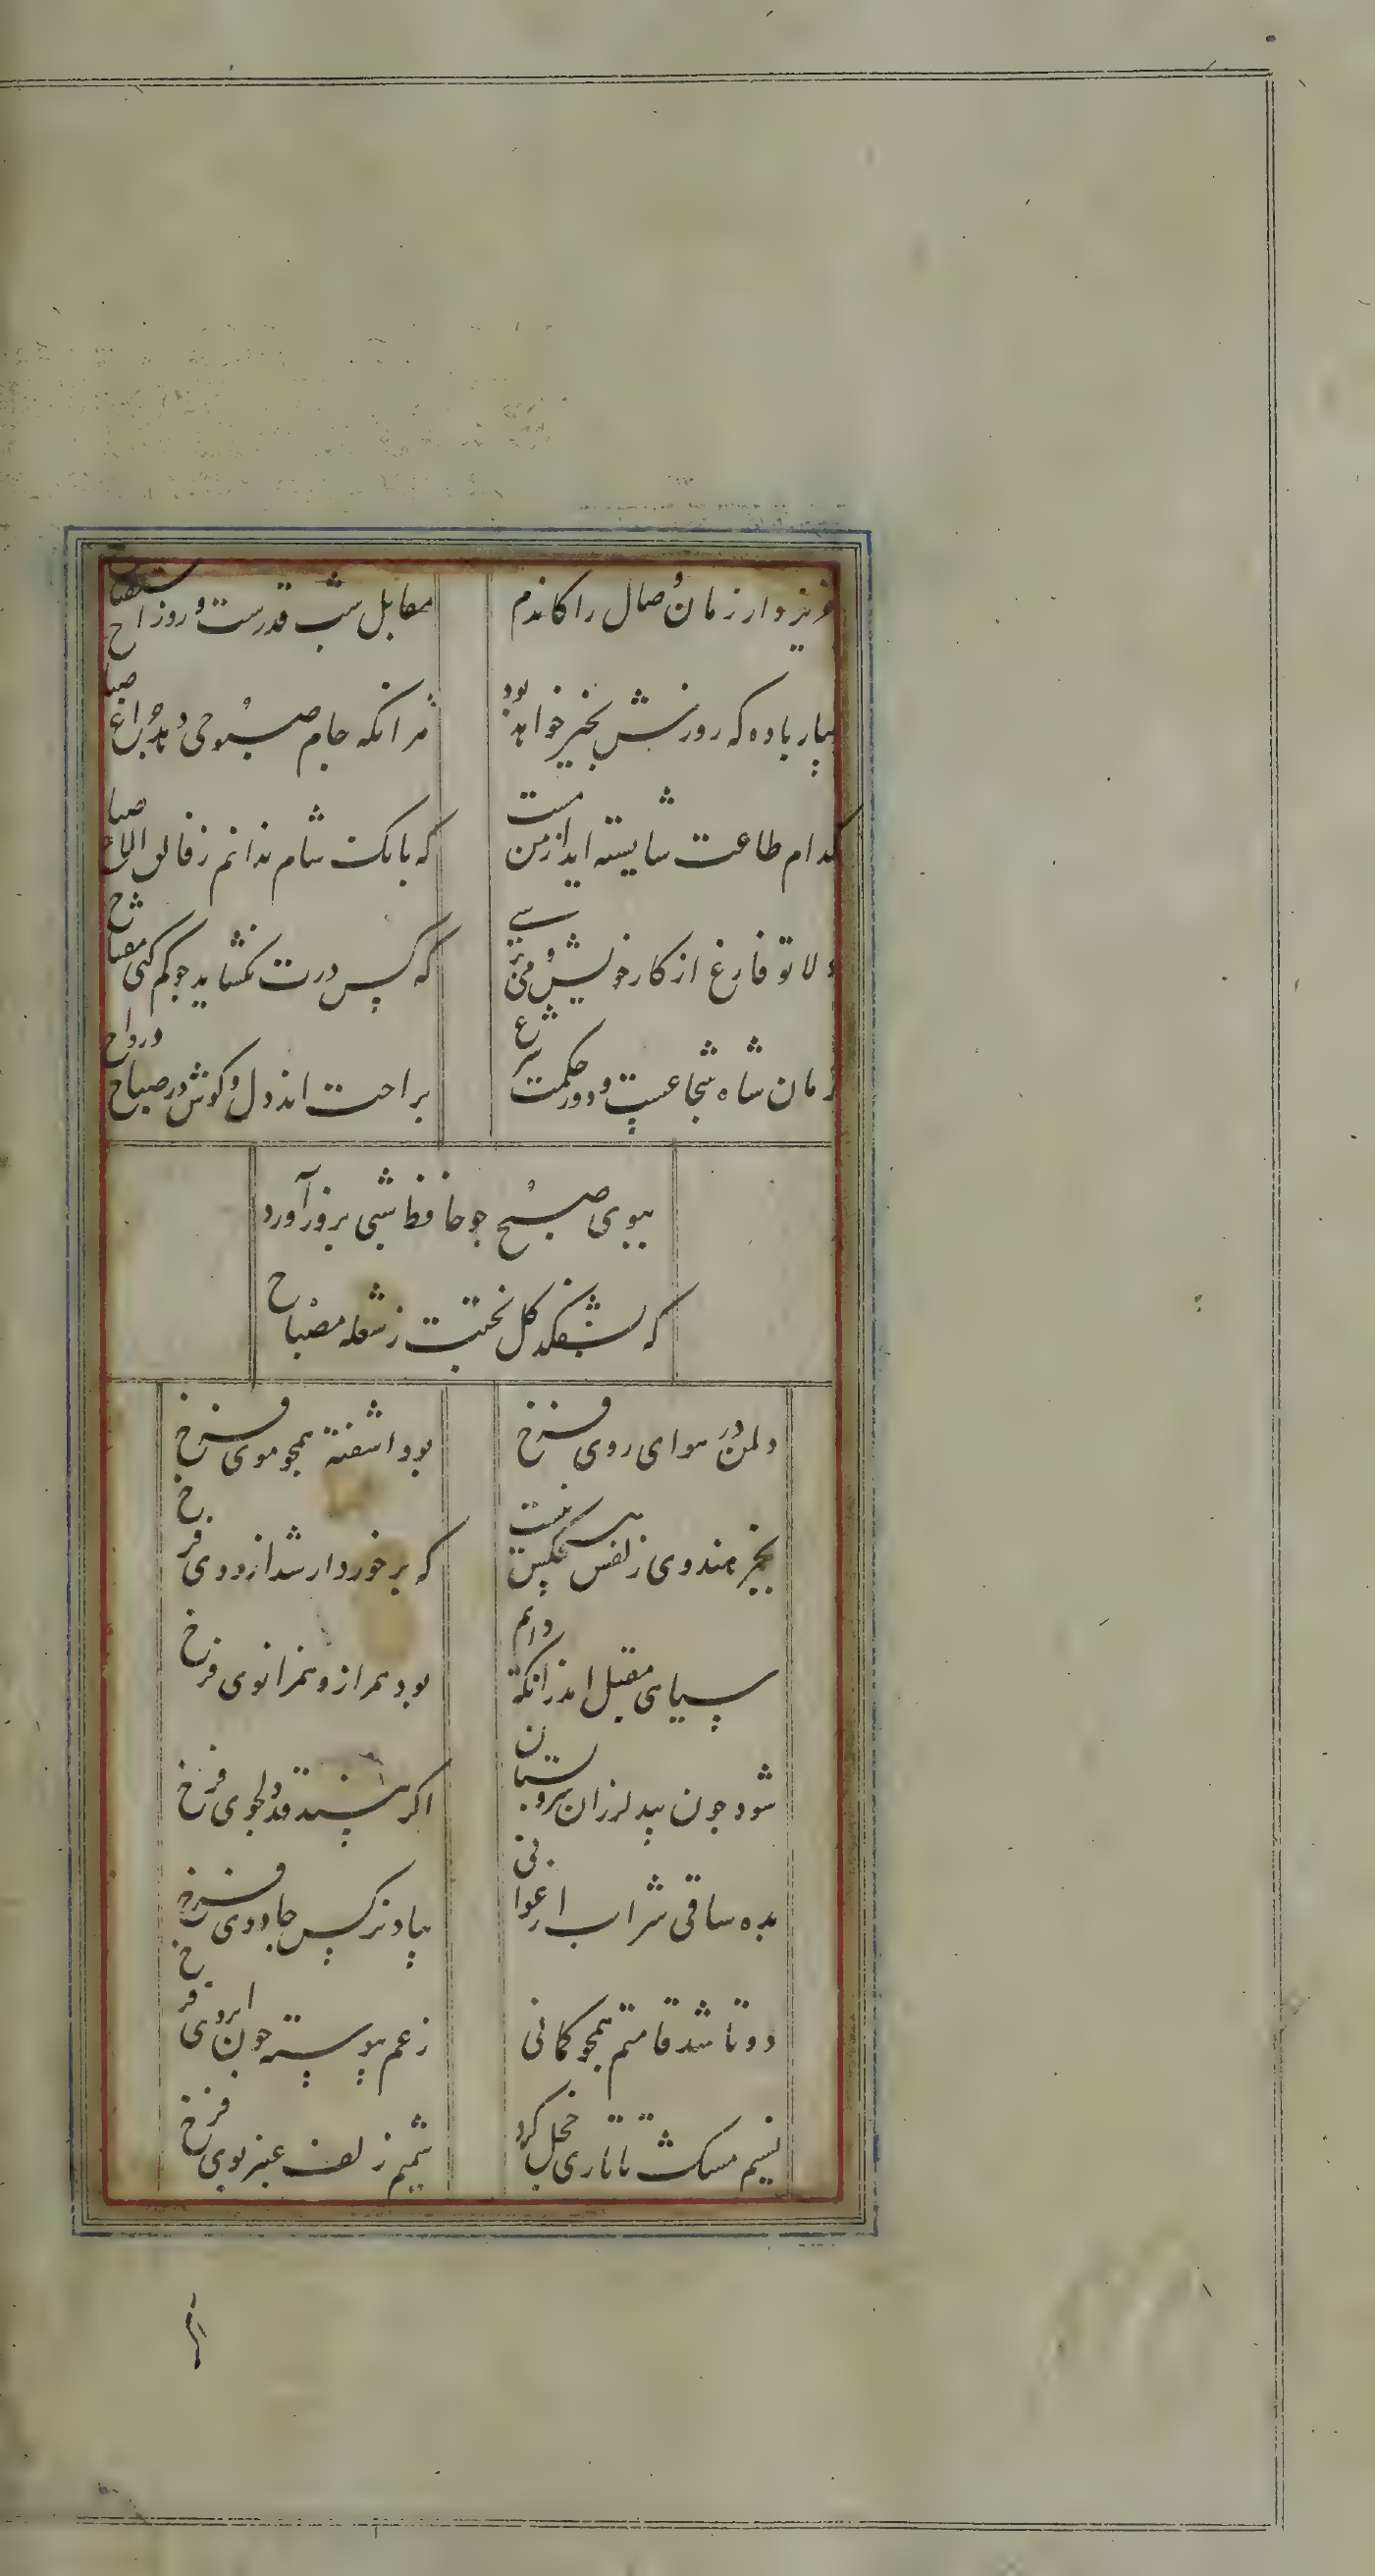 عزیز دار زمان وصال را کاندم
مقابل شب قدرست و روز استفتاح
بیار باده که روزش بخیر خواهد بود
هر انکه جام صبوحی نهد چراغ صباح
کدام طاعت شایسته اید از من مست
که بانک شام ندانم ز فالق الاصباح
دلا تو فارغ از کار خویش و می ترسی
که کس درت نکشاید جو کم کنی مفتاح
زمان شاه شجاعست و دور حکمت شرع
براحت اندل و کوش در صباح و رواح
ببوی صبح جو حافظ شبی بروز آورد
که بشکفد کل بختت ز شعله مصباح
دل من در هوای روی فرخ
بود اشفته همجو موی فرخ
بجز هندوی زلفش هیجکس نیست
که برخوردار شد از روی فرخ
سیاهی مقبل اند زانکه دایم
بود همراز و همزانوی فرخ
شود جون بید لرزان سرو بستان
اکر بیند قد دلجوی فرخ
بده ساقی شراب ارغوانی
بیاد نرکس جادوی فرخ
دوتا شد قامتم همجو کمانی
ز غم پیوسته جون ابروی فرخ
نسیم مشک تاتاری خجل کرد
شمیم زلف عنبر بوی فرخ